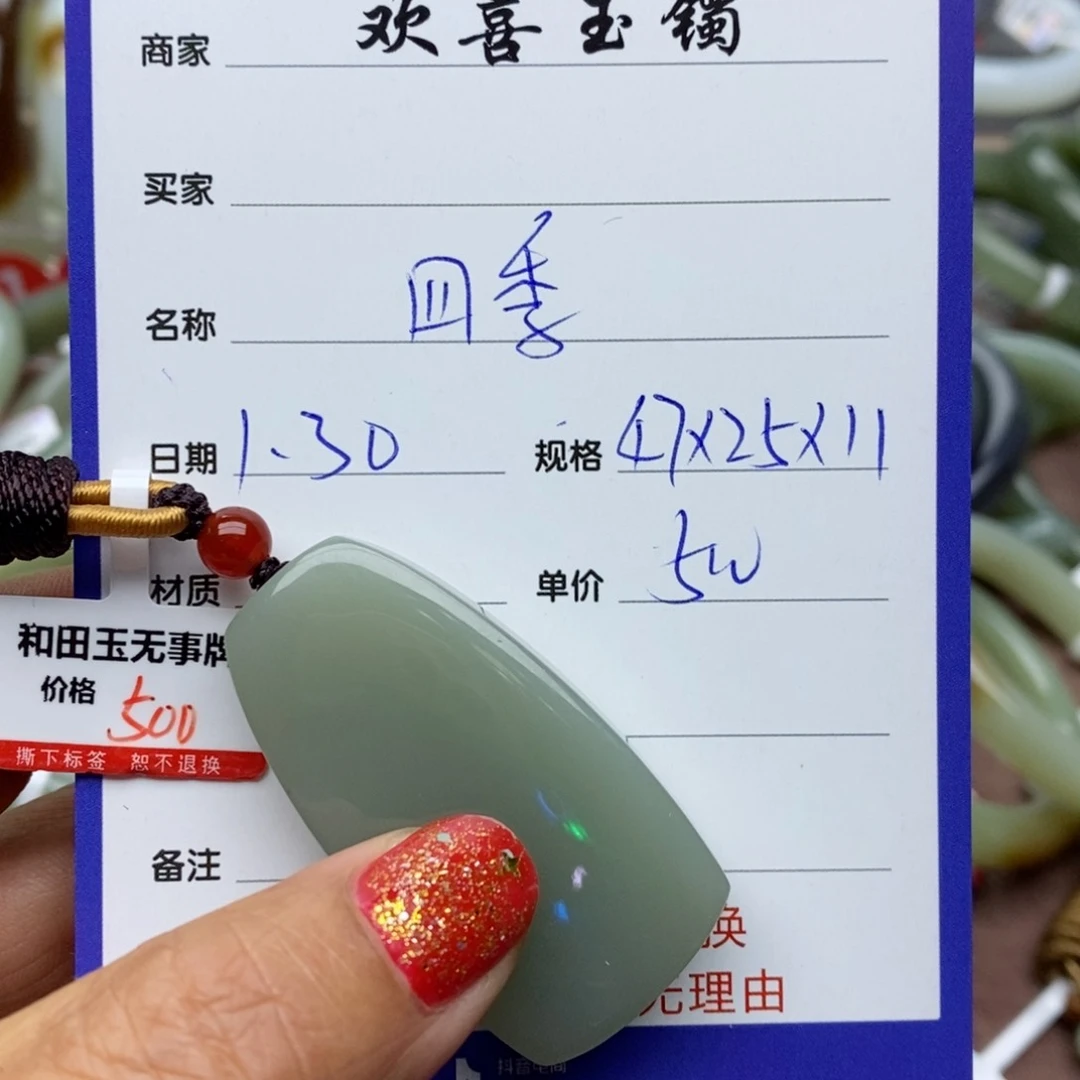 商家 欢喜玉镯
买家
名称 四季
日期 1.30 规格 47x25x11
材质 单价 500
和田玉无事牌
价格 500
撕下标签 恕不退换
备注
换
无理由
抖音电商